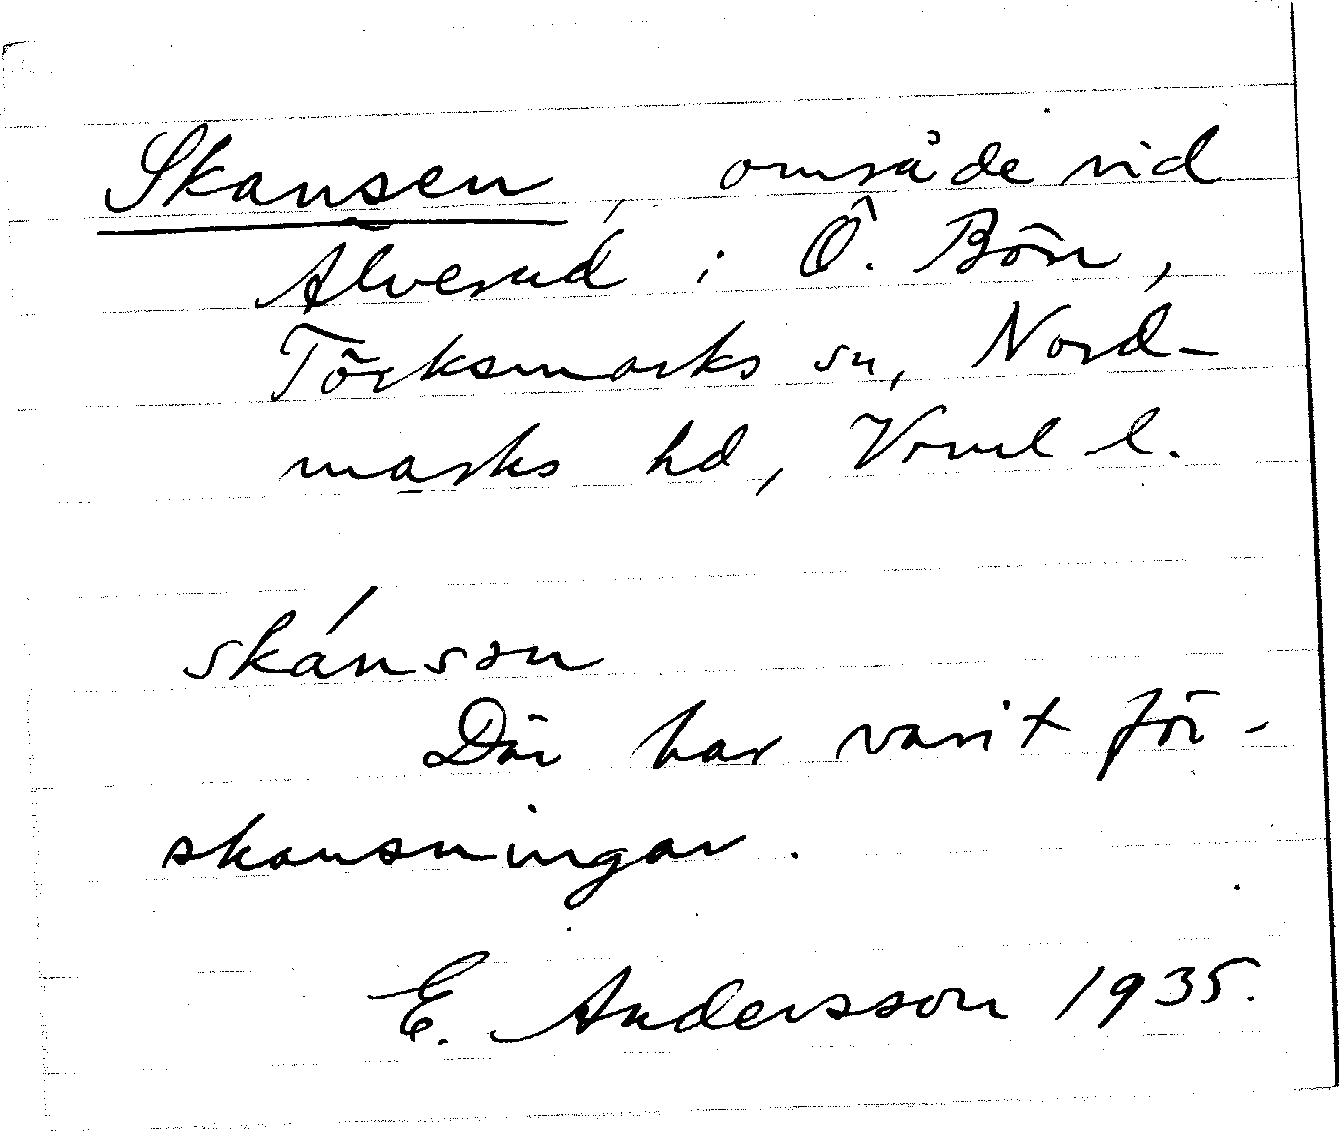 Skansen, område vid
Älverud i Ö. Bön,
Töcksmarks sn, Nord-
marks hd, Vrml l.
skánsən
Där har varit för-
skansningar.
E. Andersson 1935.